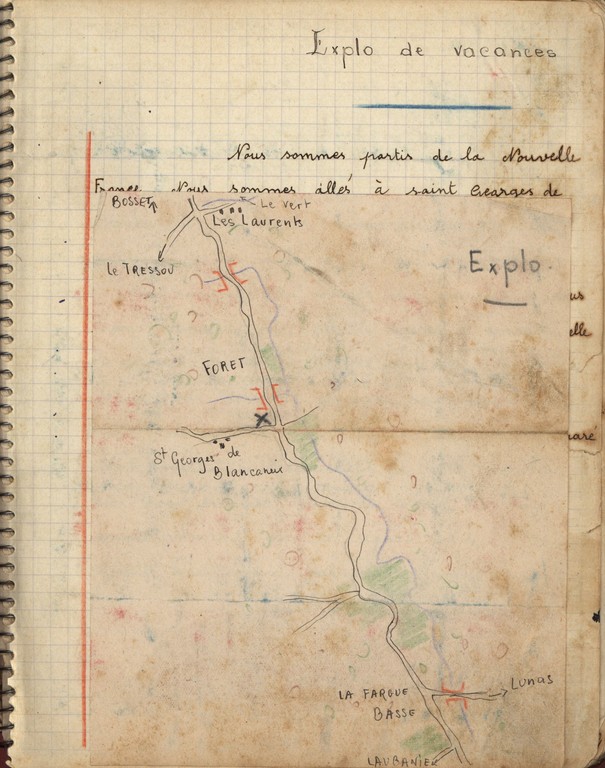 Explo de vacances
Nous sommes partis de la Nouvelle
France. Nous sommes allés à saint Georges de
BOSSET
Le Vert
Les Laurents
Le TRESSOU
Explo
us
elle
FORET
St Georges de
Blancaneix
LA FARGUE
BASSE
Lunas
LAUBANIER